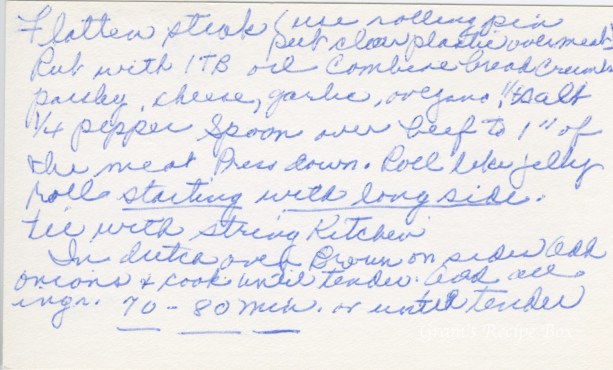 Flatten steak (use rolling pin
put clear plastic over meat)
Rub with 1 TB oil Combine bread crumbs
parsley, cheese, garlic, oregano, 1/2 salt
1/4 pepper Spoon over beef to 1" of
the meat Press down. Roll like jelly
roll starting with long side.
tie with string Kitchen
In dutch oven Brown on sides add
onions & cook until tender. Add all
ingr. 70 - 80 min. or until tender
Gram's Recipe Box